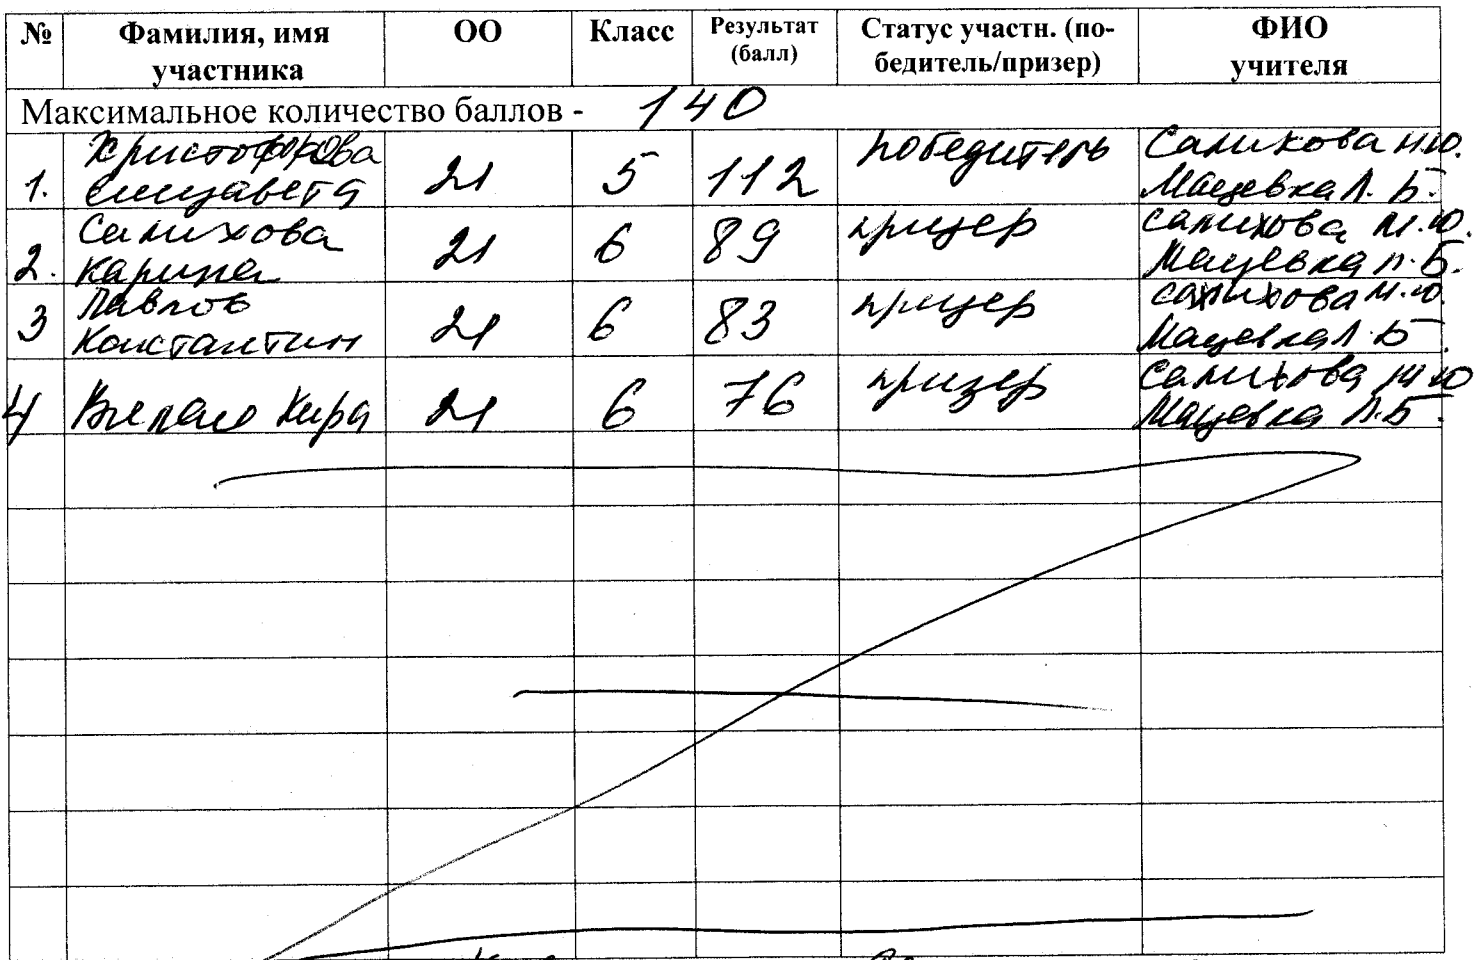 № Фамилия, имя участника ОО Класс Результат (балл) Статус участн. (по-бедитель/призер) ФИО учителя
Максимальное количество баллов - 140
1. Христофорова Елизавета 21 5 112 победитель Салихова М.Ю. Мацевка Л. Б.
2. Салихова Карина 21 6 89 призер Салихова М.Ю. Мацевка Л. Б.
3 Павлов Константин 21 6 83 призер Салихова М.Ю. Мацевка Л. Б
4 Кира 21 6 76 призер Салихова М.Ю Мацевка Л.Б.